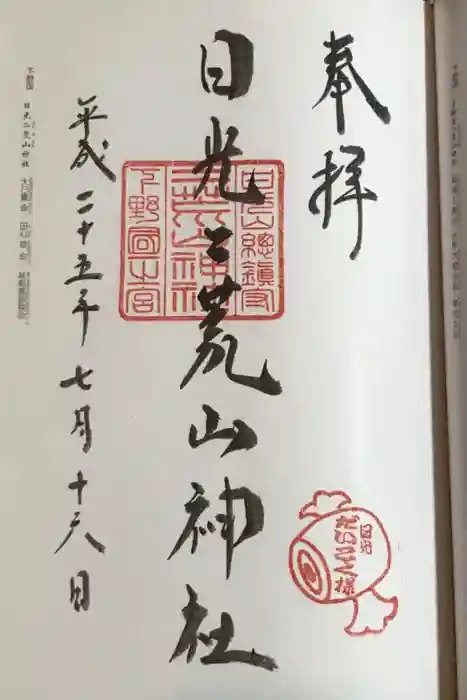 奉拝
日光二荒山神社
平成二十五年七月十六日
日光山總鎮守
二荒山神社
下野國一之宮
日光
だいこく様
日光二荒山神社